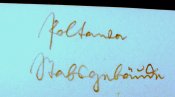 Poltawa
Stabsgebäude